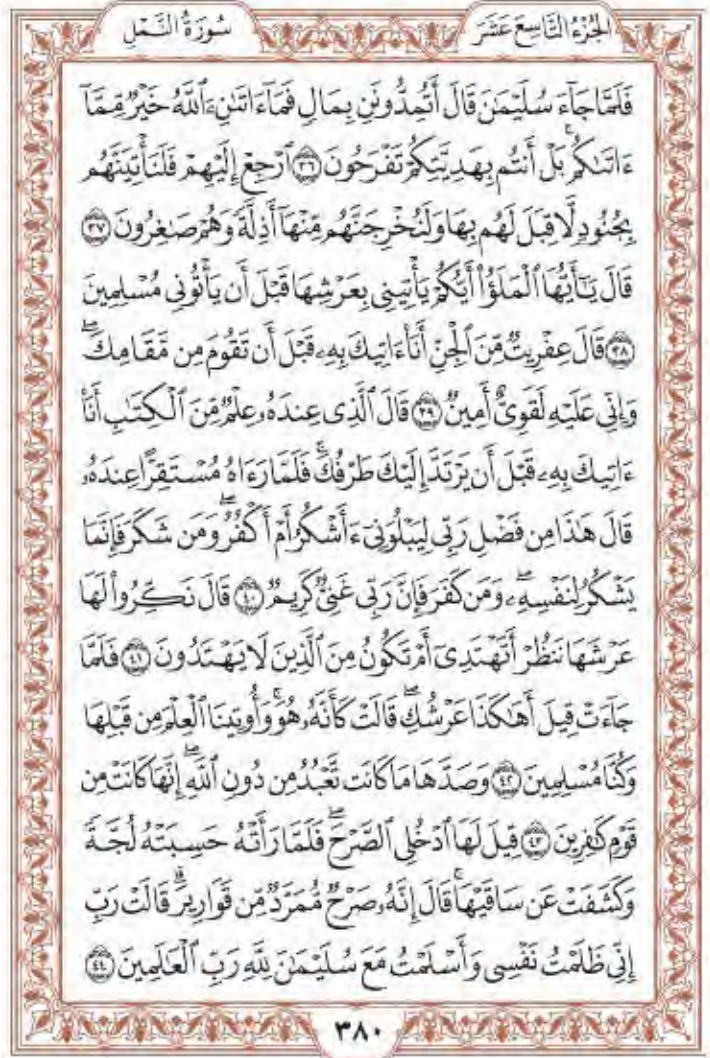 الجُزْءُ التَّاسِعَ عَشَرَ سُورَةُ النَّمْلِ
فَلَمَّا جَآءَ سُلَيْمَٰنَ قَالَ أَتُمِدُّونَنِ بِمَالٖ فَمَآ ءَاتَىٰنِۦَ ٱللَّهُ خَيۡرٞ مِّمَّآ
ءَاتَىٰكُمۚ بَلۡ أَنتُم بِهَدِيَّتِكُمۡ تَفۡرَحُونَ ٣٦ ٱرۡجِعۡ إِلَيۡهِمۡ فَلَنَأۡتِيَنَّهُم
بِجُنُودٖ لَّا قِبَلَ لَهُم بِهَا وَلَنُخۡرِجَنَّهُم مِّنۡهَآ أَذِلَّةٗ وَهُمۡ صَٰغِرُونَ ٣٧
قَالَ يَٰٓأَيُّهَا ٱلۡمَلَؤُاْ أَيُّكُمۡ يَأۡتِينِي بِعَرۡشِهَا قَبۡلَ أَن يَأۡتُونِي مُسۡلِمِينَ
٣٨ قَالَ عِفۡرِيتٞ مِّنَ ٱلۡجِنِّ أَنَا۠ ءَاتِيكَ بِهِۦ قَبۡلَ أَن تَقُومَ مِن مَّقَامِكَۖ
وَإِنِّي عَلَيۡهِ لَقَوِيٌّ أَمِينٞ ٣٩ قَالَ ٱلَّذِي عِندَهُۥ عِلۡمٞ مِّنَ ٱلۡكِتَٰبِ أَنَا۠
ءَاتِيكَ بِهِۦ قَبۡلَ أَن يَرۡتَدَّ إِلَيۡكَ طَرۡفُكَۚ فَلَمَّا رَءَاهُ مُسۡتَقِرًّا عِندَهُۥ
قَالَ هَٰذَا مِن فَضۡلِ رَبِّي لِيَبۡلُوَنِيٓ ءَأَشۡكُرُ أَمۡ أَكۡفُرُۖ وَمَن شَكَرَ فَإِنَّمَا
يَشۡكُرُ لِنَفۡسِهِۦۖ وَمَن كَفَرَ فَإِنَّ رَبِّي غَنِيّٞ كَرِيمٞ ٤٠ قَالَ نَكِّرُواْ لَهَا
عَرۡشَهَا نَنظُرۡ أَتَهۡتَدِيٓ أَمۡ تَكُونُ مِنَ ٱلَّذِينَ لَا يَهۡتَدُونَ ٤١ فَلَمَّا
جَآءَتۡ قِيلَ أَهَٰكَذَا عَرۡشُكِۖ قَالَتۡ كَأَنَّهُۥ هُوَۚ وَأُوتِينَا ٱلۡعِلۡمَ مِن قَبۡلِهَا
وَكُنَّا مُسۡلِمِينَ ٤٢ وَصَدَّهَا مَا كَانَت تَّعۡبُدُ مِن دُونِ ٱللَّهِۖ إِنَّهَا كَانَتۡ مِن
قَوۡمٖ كَٰفِرِينَ ٤٣ قِيلَ لَهَا ٱدۡخُلِي ٱلصَّرۡحَۖ فَلَمَّا رَأَتۡهُ حَسِبَتۡهُ لُجَّةٗ
وَكَشَفَتۡ عَن سَاقَيۡهَاۚ قَالَ إِنَّهُۥ صَرۡحٞ مُّمَرَّدٞ مِّن قَوَارِيرَۗ قَالَتۡ رَبِّ
إِنِّي ظَلَمۡتُ نَفۡسِي وَأَسۡلَمۡتُ مَعَ سُلَيۡمَٰنَ لِلَّهِ رَبِّ ٱلۡعَٰلَمِينَ ٤٤
٣٨٠